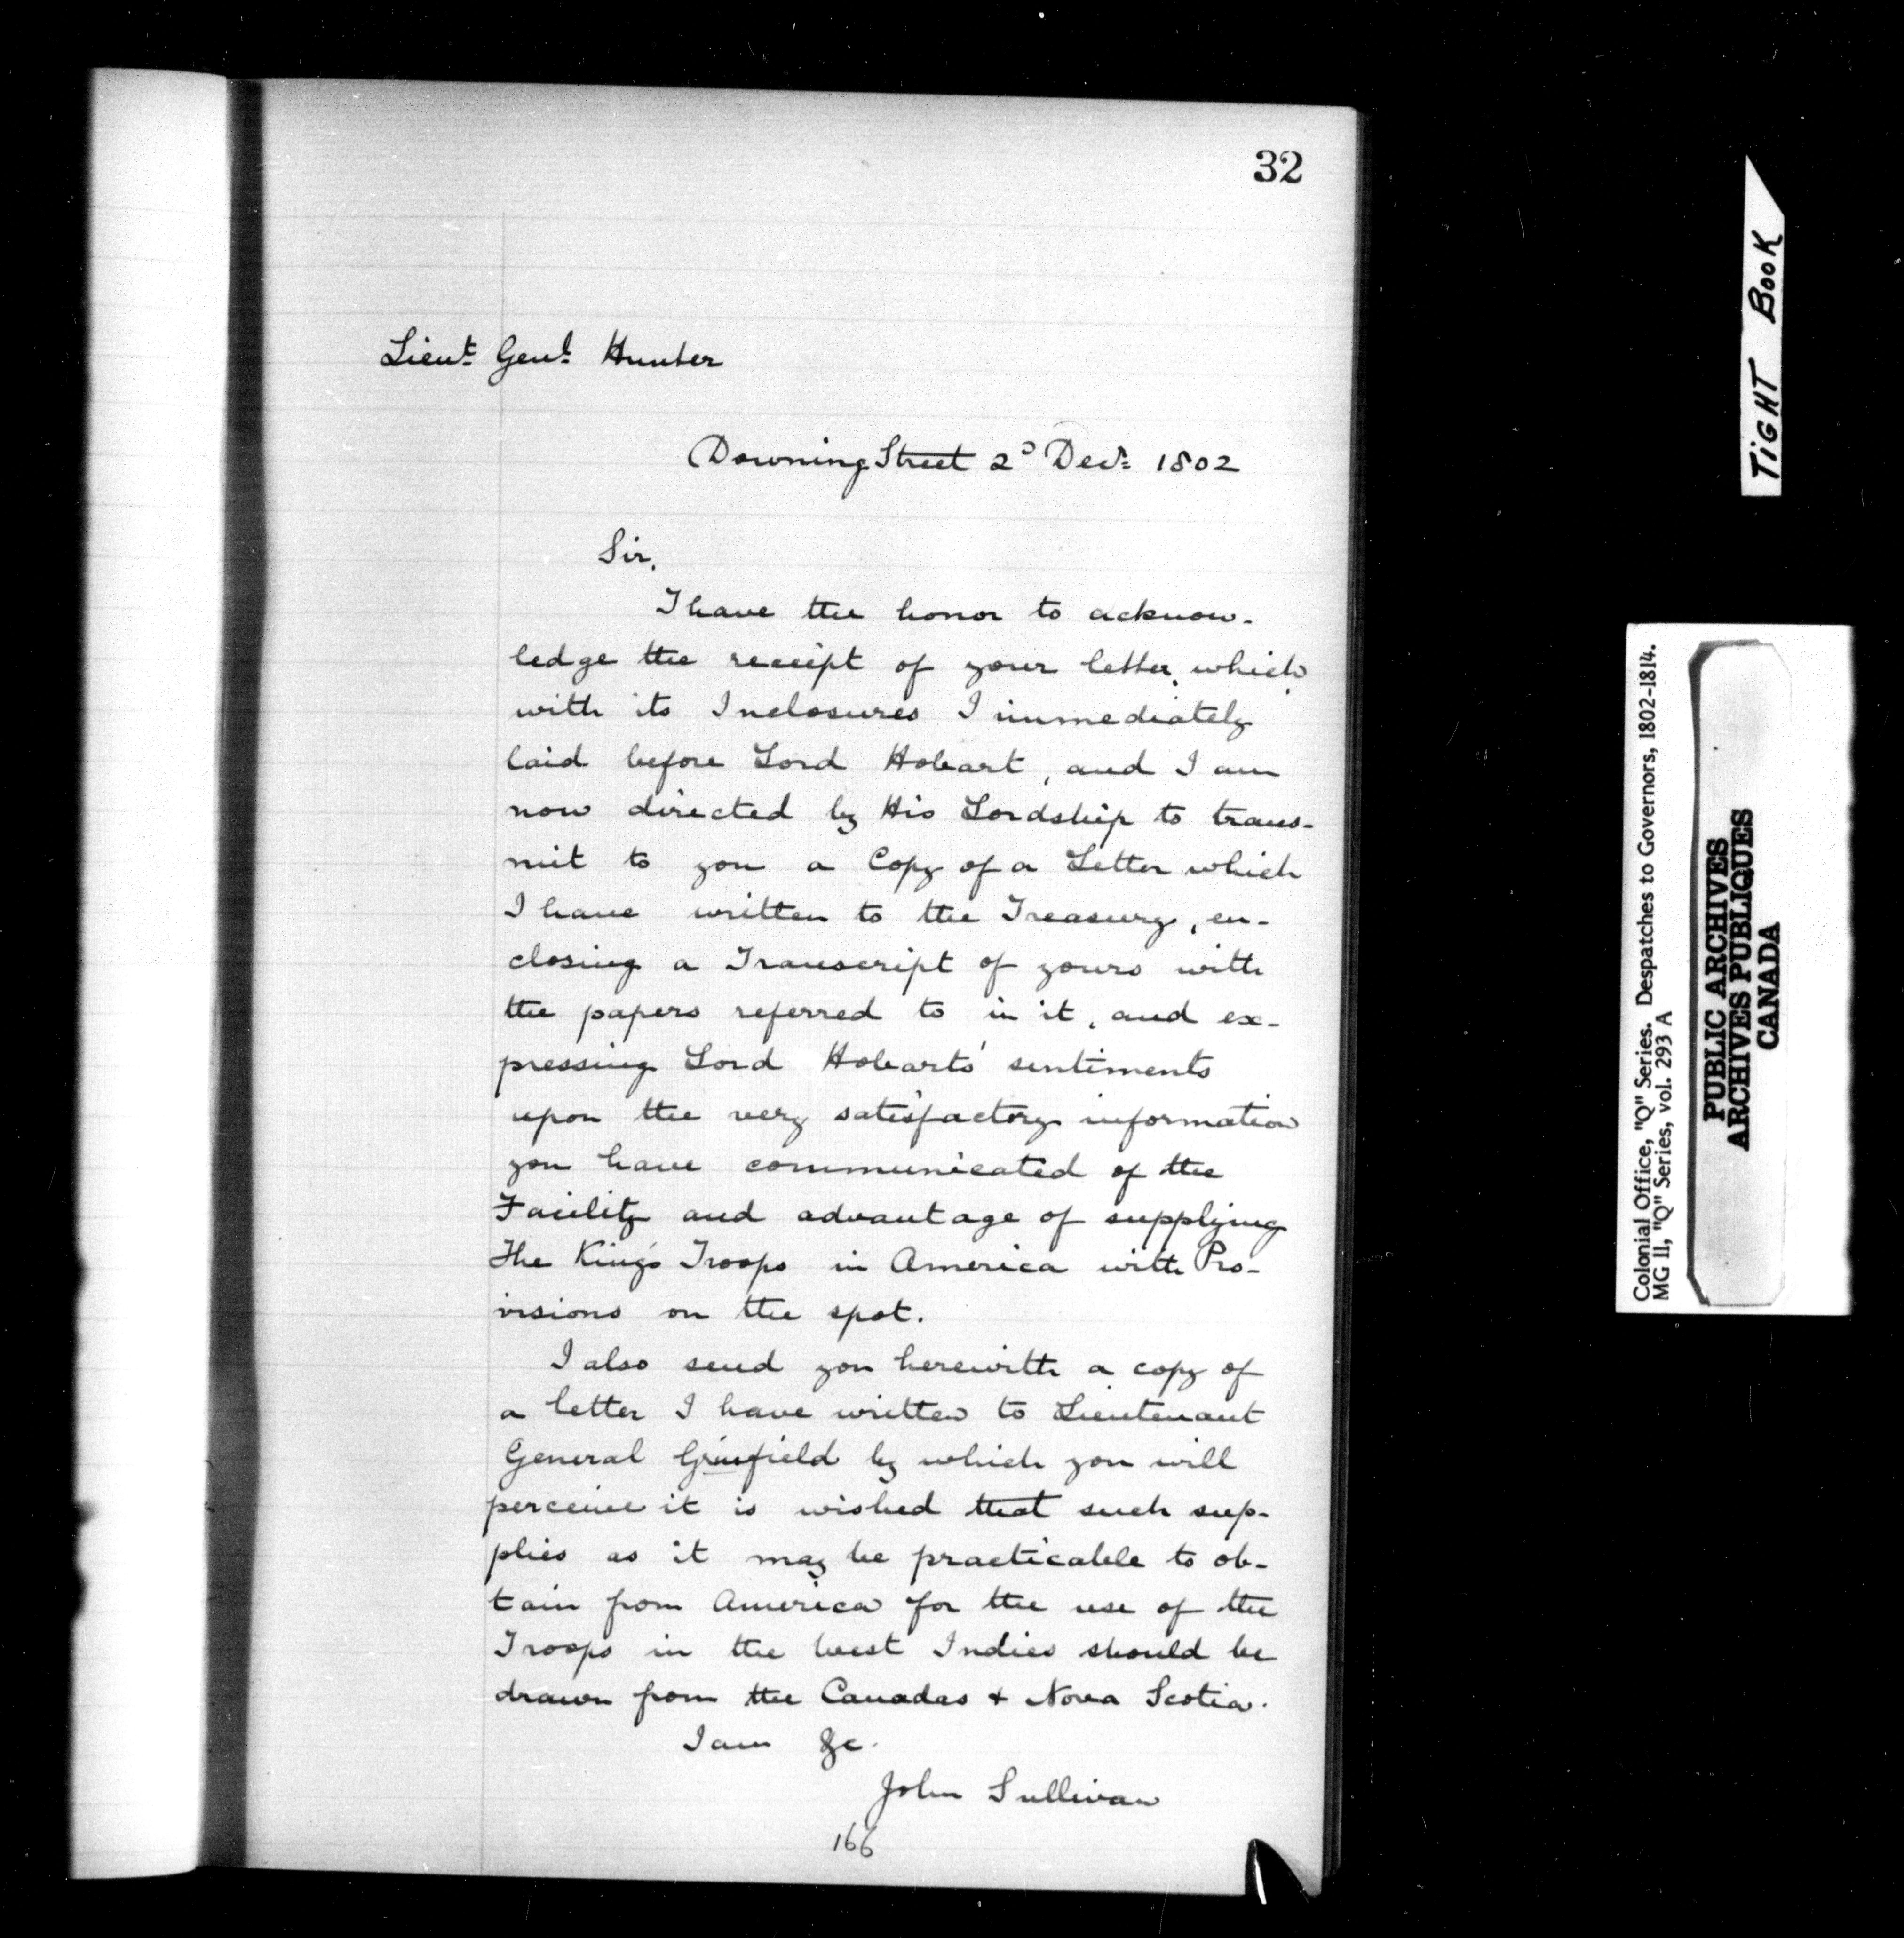 32
Lieut. Genl. Hunter
Downing Street 2d Decr. 1802
Sir,
I have the honor to acknow-
ledge the receipt of your letter, which
with its Inclosures I immediately
laid before Lord Hobart, and I am
now directed by His Lordship to trans-
mit to you a Copy of a Letter which
I have written to the Treasury, en-
closing a Transcript of yours with
the papers referred to in it, and ex-
pressing Lord Hobarts' sentiments
upon the very satisfactory information
you have communicated of the
Facility and advantage of supplying
The King's Troops in America with Pro-
visions on the spot.
I also send you herewith a copy of
a letter I have written to Lieutenant
General Grinfield by which you will
perceive it is wished that such sup-
plies as it may be practicable to ob-
tain from America for the use of the
Troops in the West Indies should be
drawn from the Canadas & Nova Scotia.
I am &c.
John Sullivan
166
TIGHT BOOK
Colonial Office, "Q" Series. Despatches to Governors, 1802-1814.
MG 11, "Q" Series, vol. 293 A
PUBLIC ARCHIVES
ARCHIVES PUBLIQUES
CANADA